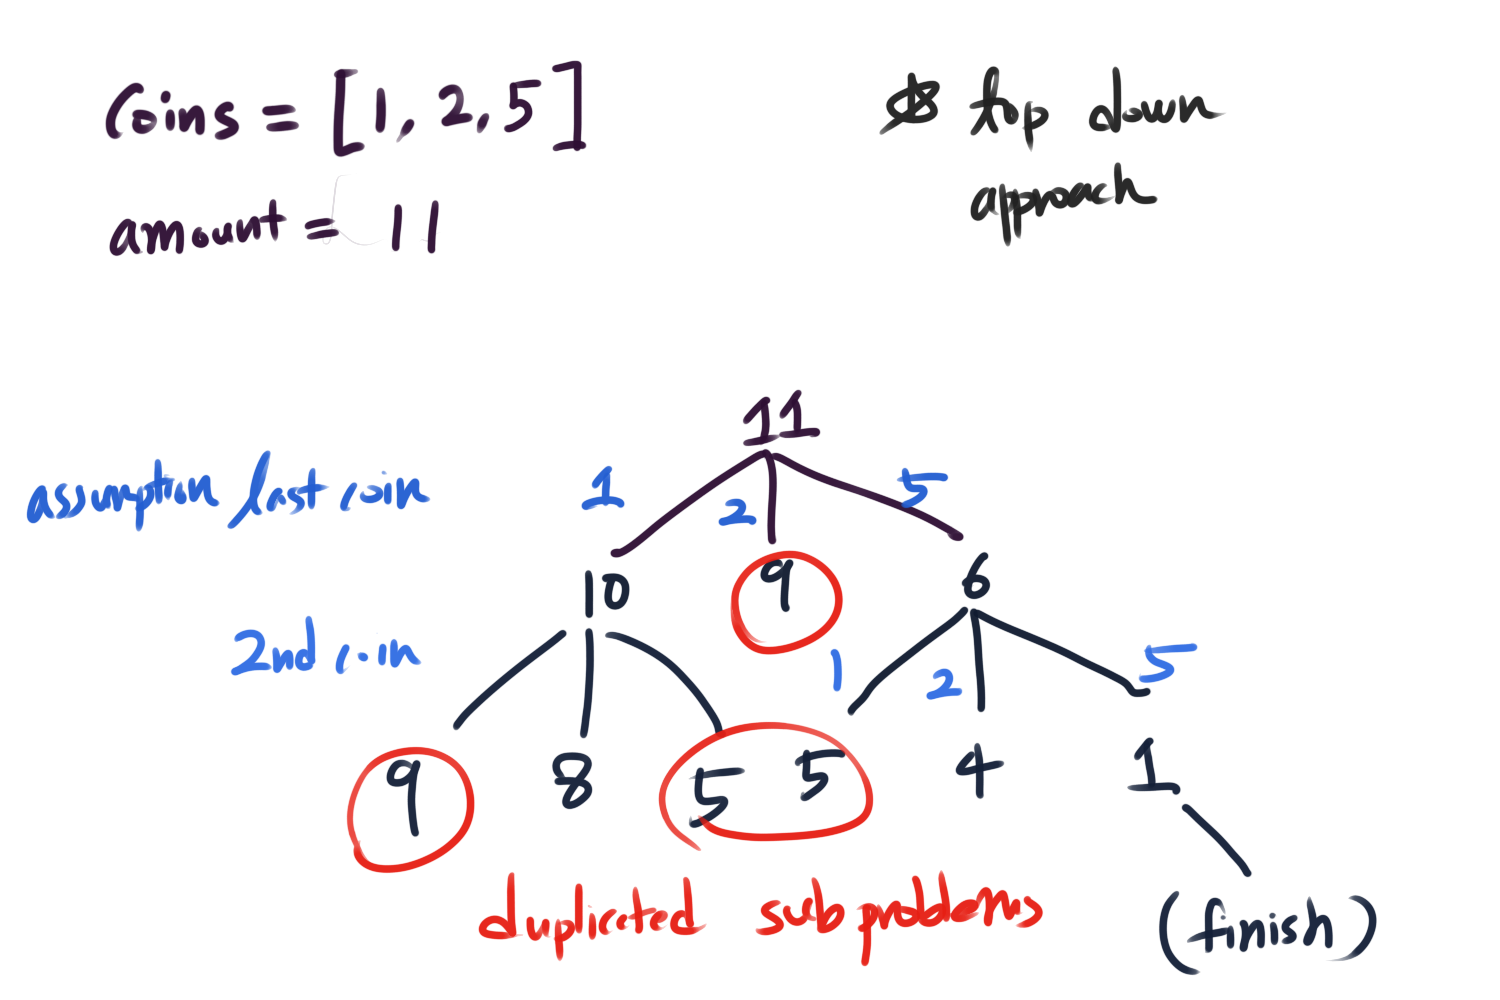 Coins = [1, 2, 5]
amount = 11
top down
approach
11
assumption last coin
1 2 5
10 9 6
2nd coin
1 2 5
9 8 5 5 4 1
duplicated subproblems
(finish)